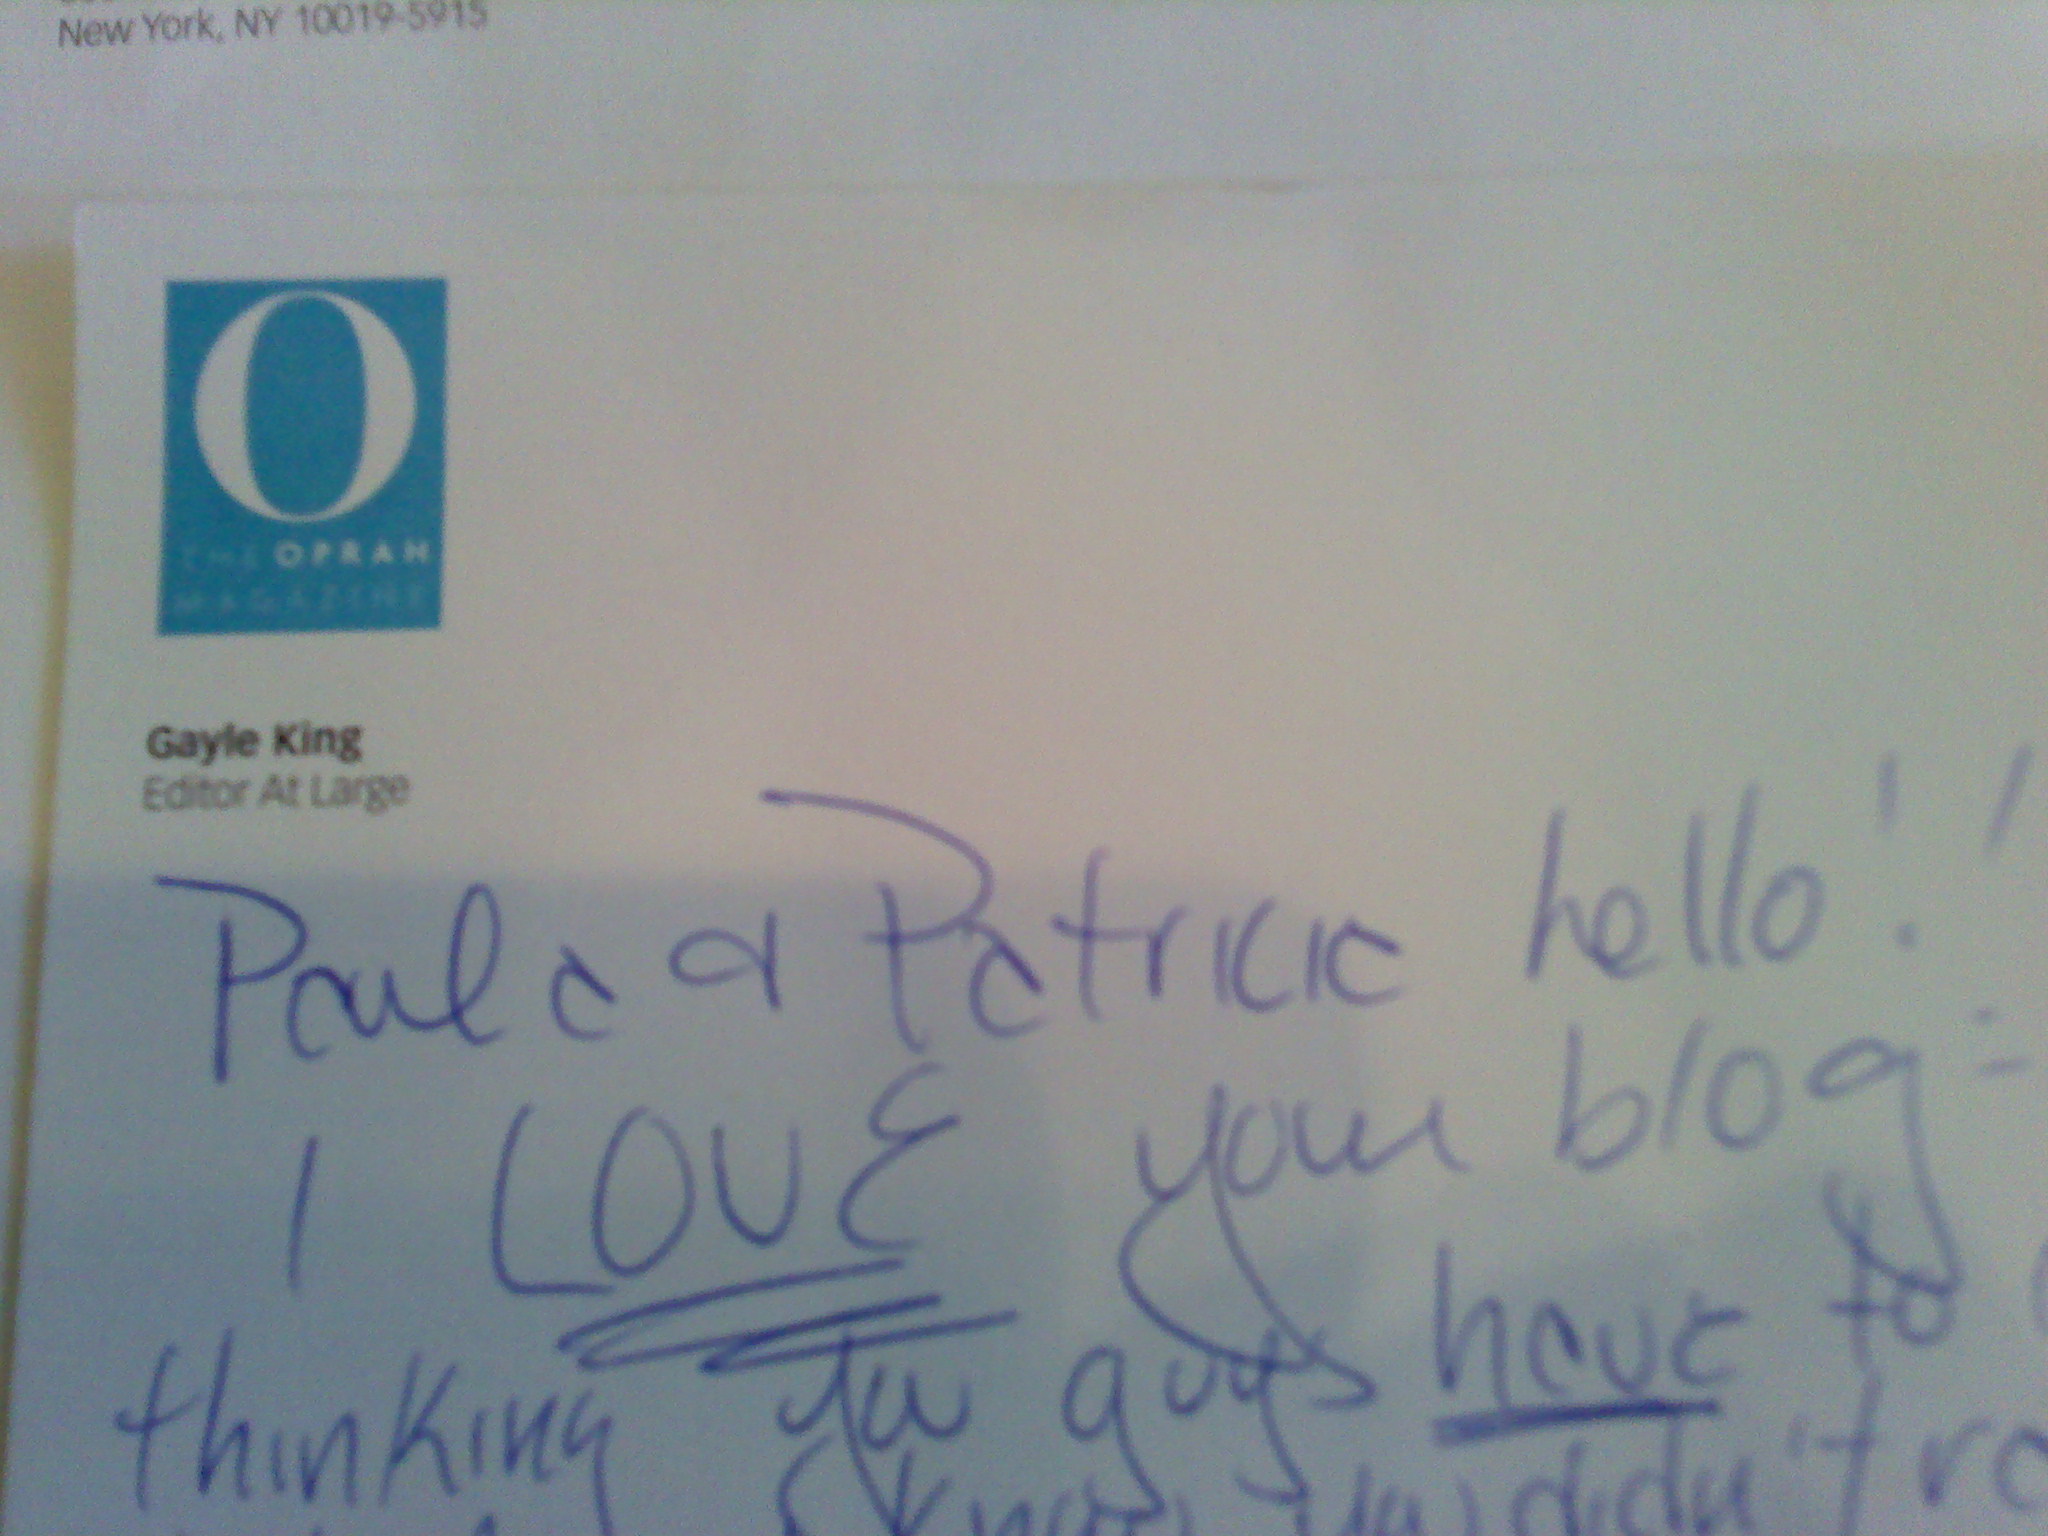 New York, NY 10019-5915
O
THE OPRAH
MAGAZINE
Gayle King
Editor At Large
Paula & Patrick hello!!
I LOVE your blog -
thinking you guys have to
know you didn't